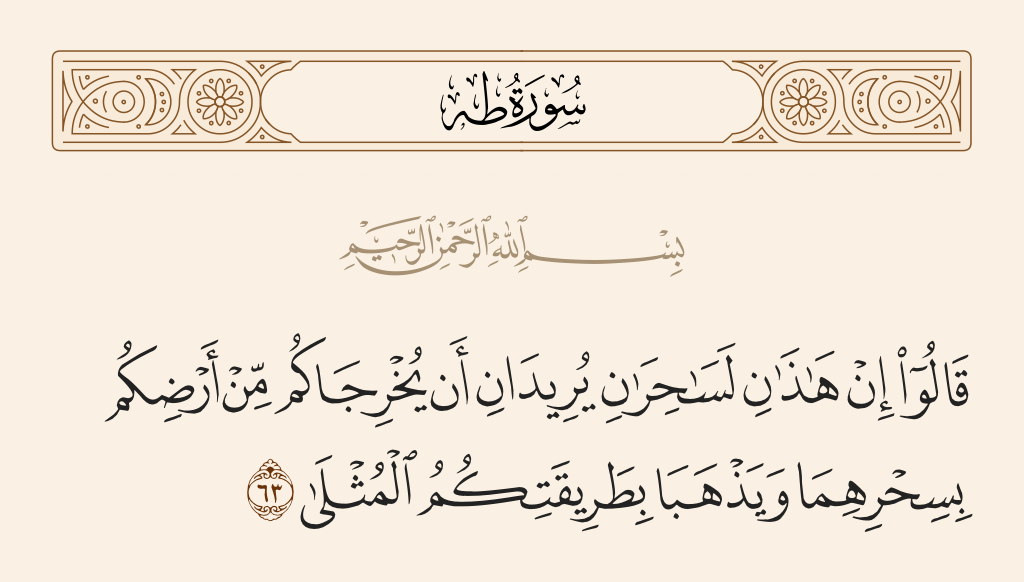 سُورَةُ طه
بِسْمِ ٱللَّهِ ٱلرَّحْمَٰنِ ٱلرَّحِيمِ
قَالُوٓا۟ إِنْ هَٰذَٰنِ لَسَٰحِرَٰنِ يُرِيدَانِ أَن يُخْرِجَاكُم مِّنْ أَرْضِكُم
بِسِحْرِهِمَا وَيَذْهَبَا بِطَرِيقَتِكُمُ ٱلْمُثْلَىٰ ٦٣